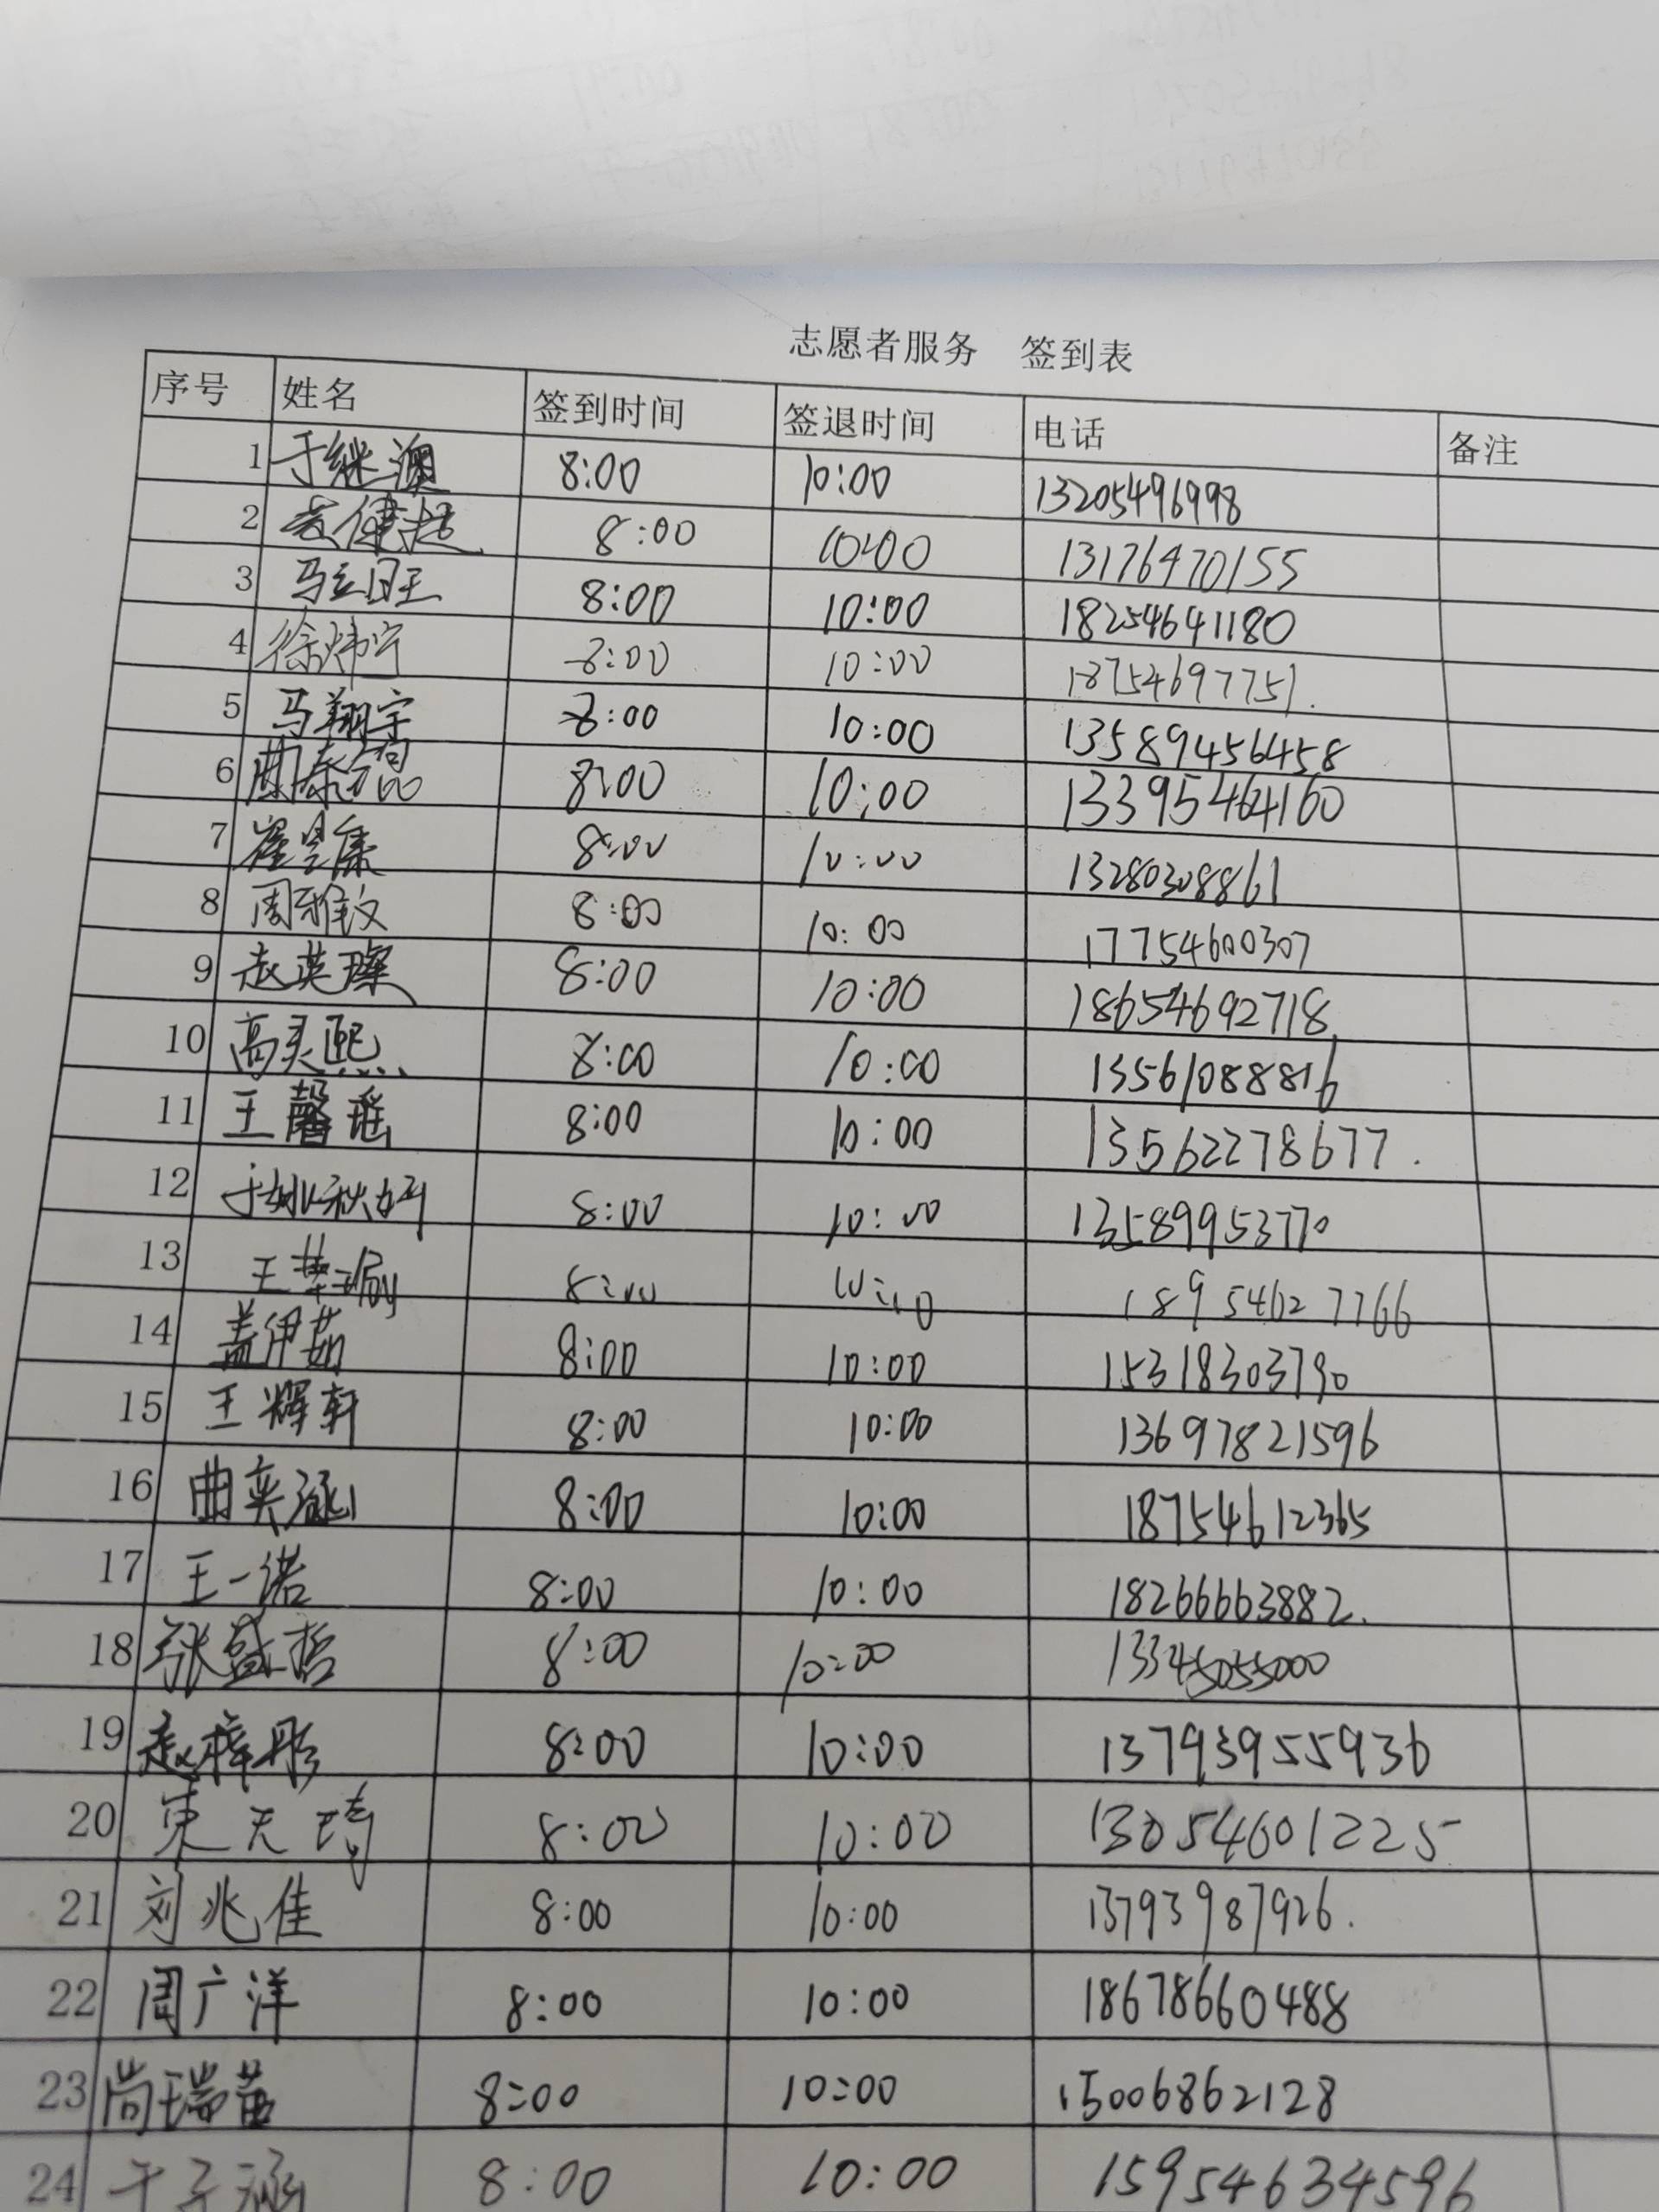 志愿者服务 签到表
序号 姓名 签到时间 签退时间 电话 备注
1 于继澳 8:00 10:00 13205496998
2 8:00 10:00 13176470155
3 马立日王 8:00 10:00 18254641180
4 徐炜宁 8:00 10:00 18754697751.
5 马翔宇 8:00 10:00 13589456458
6 曲泰锟 8:00 10:00 13395464160
7 崔昱康 8:00 10:00 13280308861
8 周雅文 8:00 10:00 17754600307
9 赵英璨 8:00 10:00 18654692718
10 高灵熙 8:00 10:00 13561088816
11 王馨瑶 8:00 10:00 13562278677.
12 于姚秋妤 8:00 10:00 13589953770
13 8:00 18954627766
14 盖伊茹 8:00 10:00 15318303790
15 王辉轩 8:00 10:00 13697821596
16 曲奕涵 8:00 10:00 18754612365
17 王一诺 8:00 10:00 18266663882.
18 张盛哲 8:00 10:00 13345055000
19 赵梓彤 8:00 10:00 13793955936
20 束天琦 8:00 10:00 13054601225
21 刘兆佳 8:00 10:00 13793987926.
22 周广洋 8:00 10:00 18678660488
23 尚瑞苗 8:00 10:00 15006862128
24 于子涵 8:00 10:00 15954634596